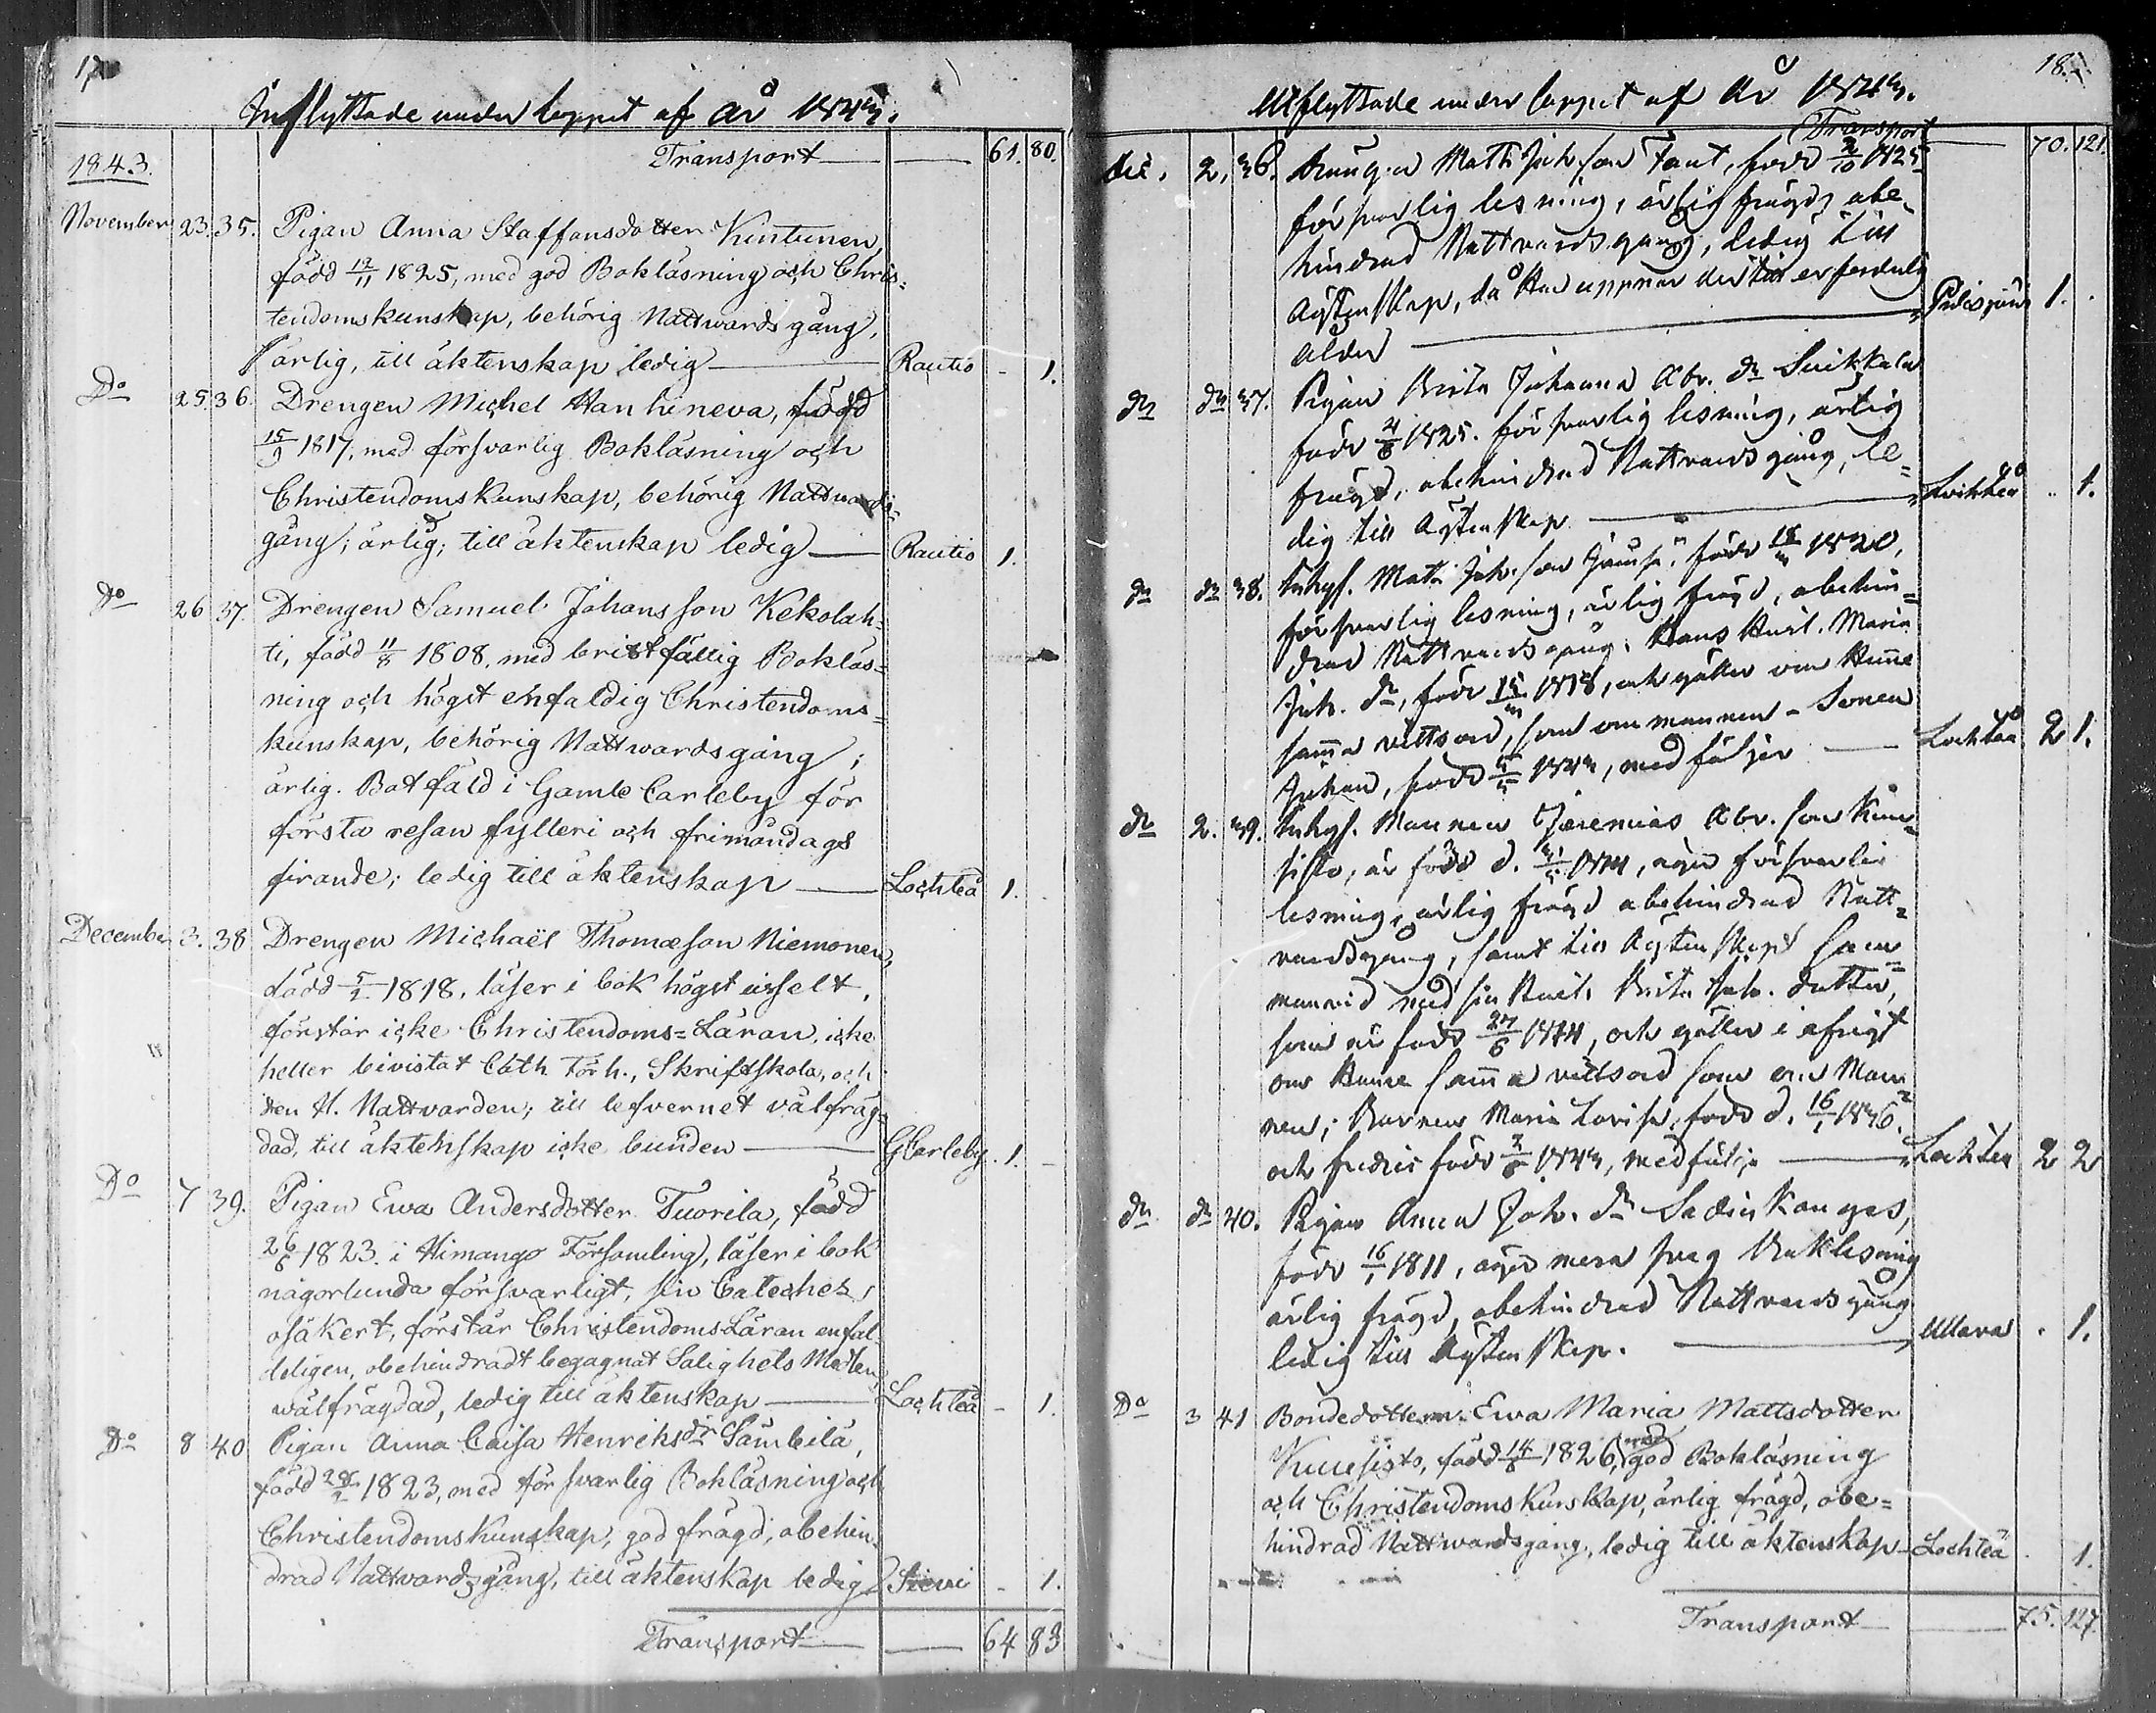 17
Inflyttade under loppet af År 1843.
1843. Transport 61. 80.
November 23. 35. Pigan Anna Staffansdotter Kintunen,
född 19/11 1825, med god Bokläsning och Chris-
tendomskunskap, behörig Nattwardsgång,
ärlig, till äktenskap ledig Rautio - 1.
Do 25. 36. Drengen Michel Hanhineva, född
15/9 1817, med försvarlig Bokläsning och
Christendomskunskap, behörig Nattwards-
gång; ärlig; till äktenskap ledig Rautio 1.
Do 26 37. Drengen Samuel Johansson Kekolah-
ti, född 11/8 1808, med bristfällig Bokläs-
ning och högst enfaldig Christendoms-
kunskap, behörig Nattwardsgång;
ärlig. Botfäld i Gamle Carleby för
första resan fylleri och frimåndags
firande; ledig till äktenskap Lochteå 1.
December 3. 38 Drengen Michaël Thomæson Niemonen,
född 5/2 1818, läser i bok högst usselt,
förstår icke Christendoms-Läran, icke
heller bivistat Cath. Förh., Skriftskola, och
den H. Nattvarden; till lefvernet välfräg-
dad, till äktenskap icke bunden GCarleby. 1. -
Do 7 39. Pigan Ewa Andersdotter Tuorila, född
26/6 1823 i Himango Församling, läser i bok
någorlunda försvarligt, sin Cateches
osäkert, förstår ChristendomsLäran enfal-
deligen, obehindradt begagnat Salighets Medlen,
wälfrägdad, ledig till äktenskap Lochteå - 1.
Do 8 40 Pigan Anna Caisa Henriksdr Sämbeilä,
född 28/2 1823, med försvarlig Bokläsning och
Christendomskunskap, god frägd, obehin-
drad Nattvardsgång, till äktenskap ledig Siewi - 1.
Transport 64 83
18.
Utflyttade under loppet af År 1843.
Transport 70. 121.
dec. 2. 36. Drängen Matts Joh. son Tant, född 1825
försvarlig lesning, ärlig frägd, obe-
hindrad Nattvardsgång, ledig till
Ägtenskap, då Han uppnår dertill erforderlig
ålder Pidisjärvi 1.
do do 37. Pigan Brita Johanna Abr. dr Suikkala
född 21/8 1825. försvarlig lesning, ärlig
frägd, obehindrad Nattvardsgång, le-
dig till Ägtenskap Lochteå . 1.
do do 38. Inhys. Matts Joh. son född 18/3 1820,
försvarlig lesning, ärlig frägd, obehin-
drad Nattvardsgång. Hans Hust. Maria
Joh. dr, född 15/3 1818, och gäller om Henne
samma vittsord, som om mannen - Sonen
Johan, född 1843, medföljer Lochteå 2 1.
do 2. 39. Inhys. Mannen Jeremias Abr. son Kuu-
sisto, är född d. 1814, äger försvarlig
lesning, ärlig frägd obehindrad Natt-
vardsgång, samt till Ägtenskap sam-
manvid med sin Hust. Brita Joh. dotter,
som är född 27/6 1814, och gäller i öfrigt
om Henne samma vittsord som om Man-
nen; Barnen Maria Lovisa, född d. 16/1 1836.
och Fredric född 1843, medfölja Lochteå 2 2
do do 40. Pigan Anna Joh. dr Sadinkangas,
född 16/1 1811, äger mera svag Boklesning
ärlig frägd, obehindrad Nattvardsgång
ledig till Ägtenskap. Ullava . 1.
Do 3 41 Bondedottern Ewa Maria Mattsdotter
Kuusisto, född 14/8 1826, med god Bokläsning
och Christendomskunskap, ärlig frägd, obe-
hindrad Nattwardsgång, ledig till äktenskap Lochteå . 1.
Transport 75. 127.